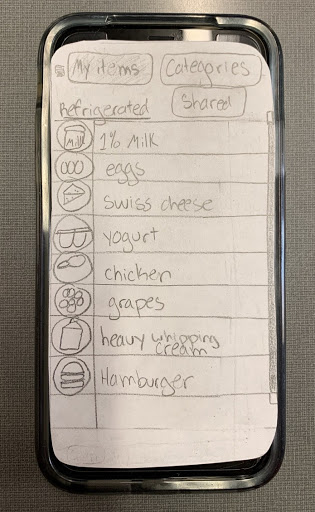 My items
Categories
Refrigerated
Shared
Milk
1% Milk
eggs
Swiss cheese
yogurt
chicken
grapes
heavy whipping
cream
Hamburger